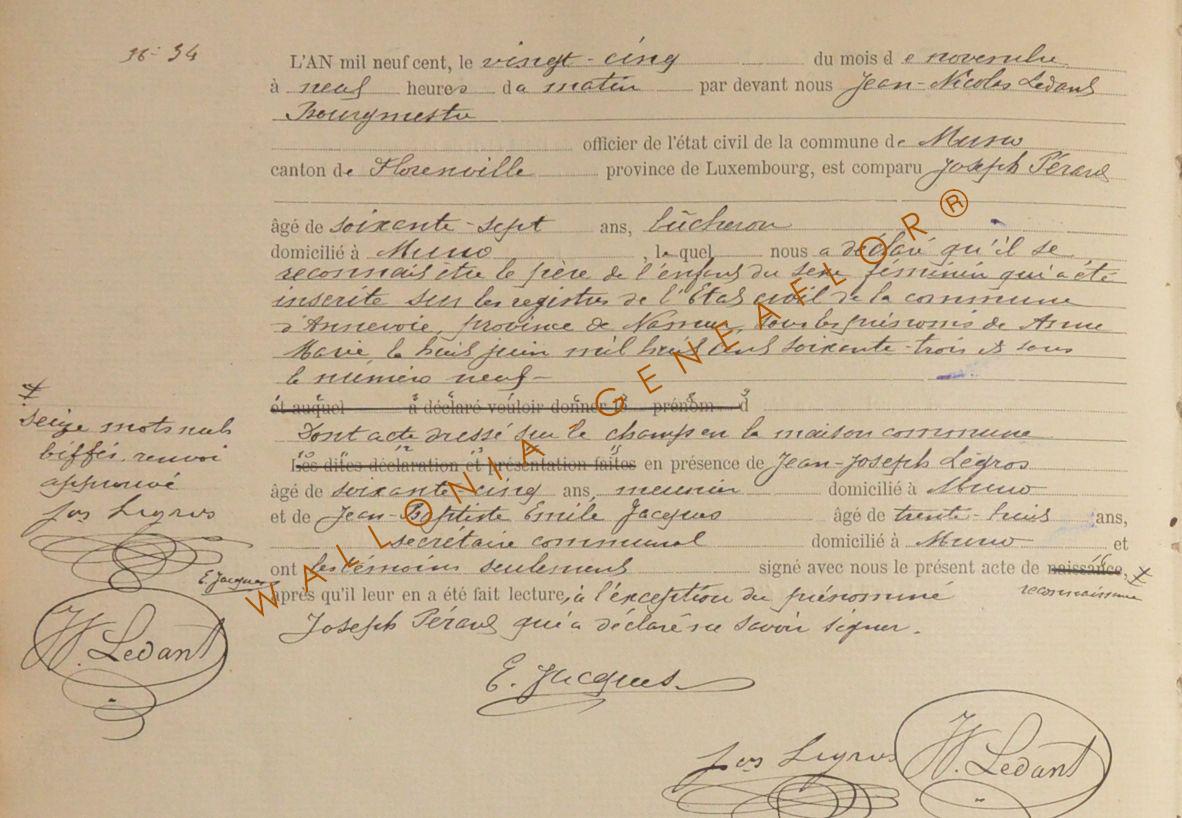 N° 34
L'AN mil neuf cent, le vingt-cinq du mois de novembre
à neuf heures da matin par devant nous Jean-Nicolas Ledant
Bourgmestre
officier de l'état civil de la commune de Muno
canton de Florenville province de Luxembourg, est comparu Joseph Pérard
âgé de soixante-sept ans, bûcheron
domicilié à Muno, lequel nous a déclaré qu'il se
reconnait être le père de l'enfant du sexe féminin qui a été
inscrite sur les registres de l'Etat civil de la commune
d'Annevoie, province de Namur, sous les prénoms de Anne
Marie, le huit juin mil huit cent soixante-trois et sous
le numéro neuf-
et auquel a déclaré vouloir donner le prénom d
Dont acte dressé sur le champ en la maison commune
Les dites déclaration et présentation faites en présence de Jean-Joseph Légros
âgé de soixante-cinq ans, meunier domicilié à Muno
et de Jean-Baptiste Emile Jacques âgé de trente-huit ans,
secrétaire communal domicilié à Muno et
ont les témoins seulement signé avec nous le présent acte de naissance, reconnaissance
après qu'il leur en a été fait lecture, à l'exception du prénommé
Joseph Pérard qui a déclaré ne savoir signer.
seize mots nuls
biffés, renvoi
approuvé
Jos Legros
E. Jacques
N. Ledant
E. Jacques
Jos Legros
N. Ledant
WALLONIA-GENEAFLOR®